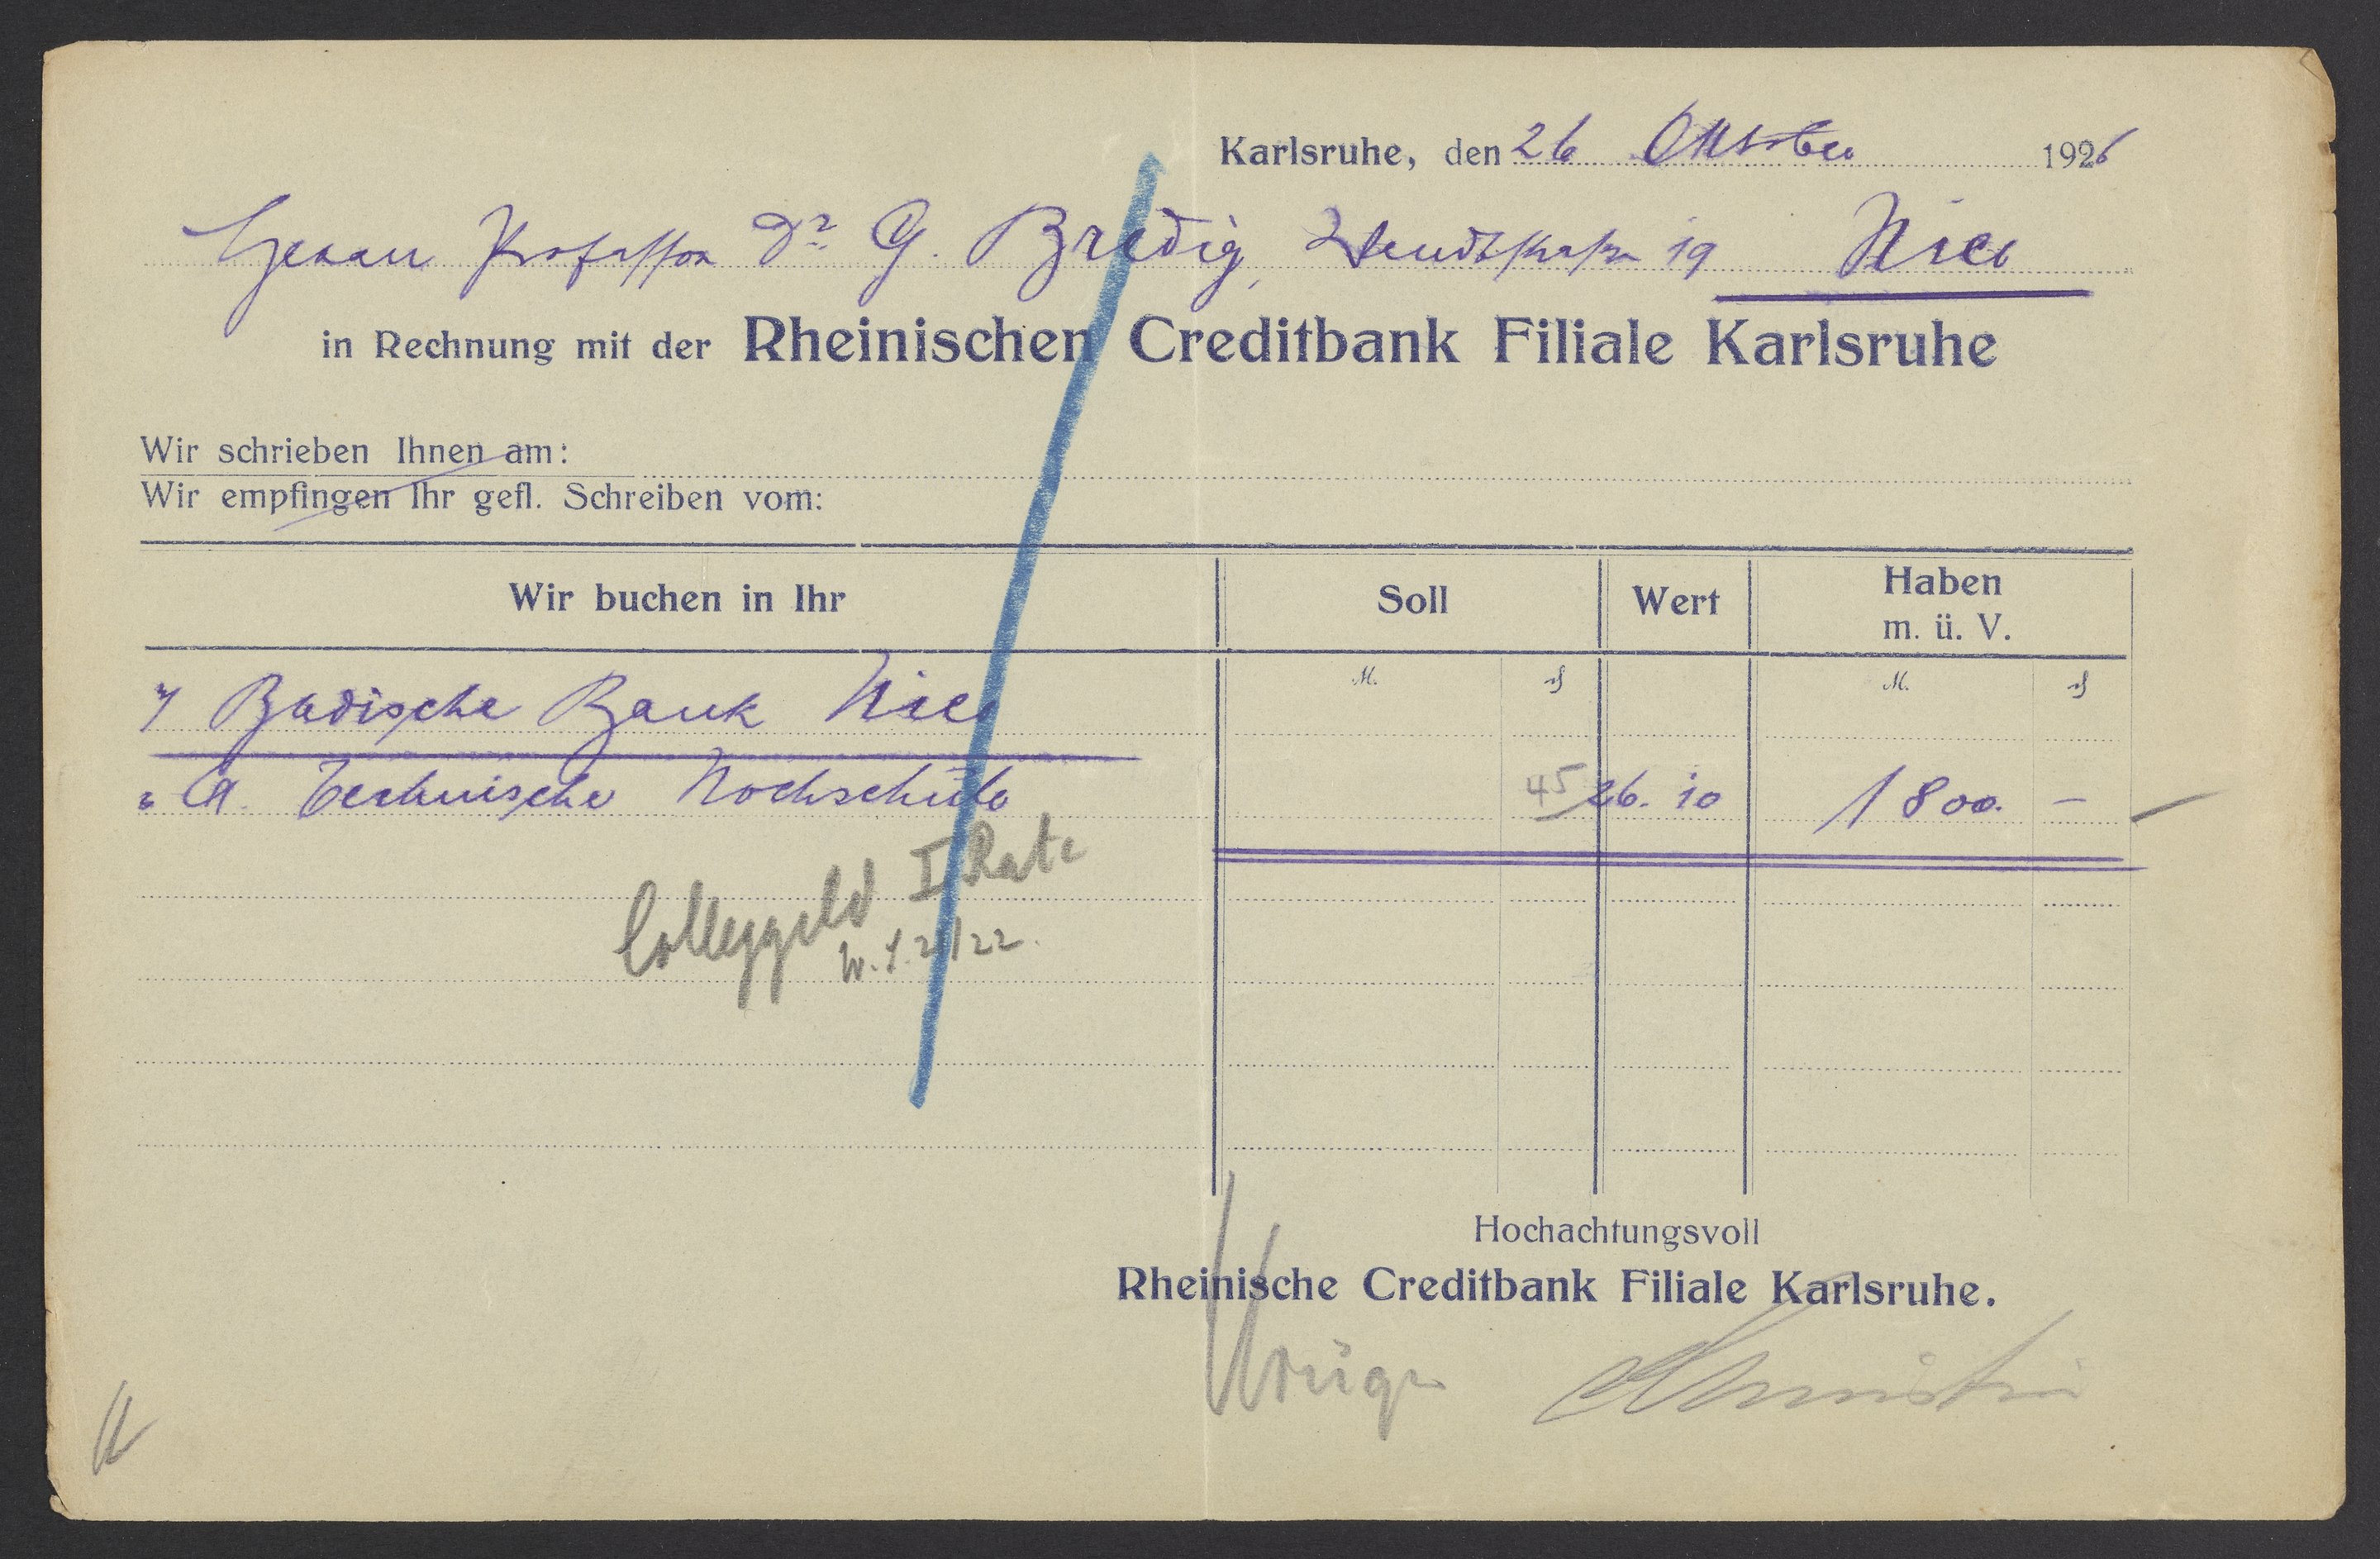 Karlsruhe, den 26 Oktober 1926
Herrn Professor Dr G. Bredig, Wendtstraße 19 Hier
in Rechnung mit der Rheinischen Creditbank Filiale Karlsruhe
Wir schrieben Ihnen am:
Wir empfingen Ihr gefl. Schreiben vom:
Wir buchen in Ihr Soll Wert Haben
m. ü. V.
M. ₰ M. ₰
Badische Bank Hier
" A. Technische Hochschule 45 26. 10 1800. –
Colleggeld I Rate
W. S. 21/22.
Hochachtungsvoll
Rheinische Creditbank Filiale Karlsruhe.